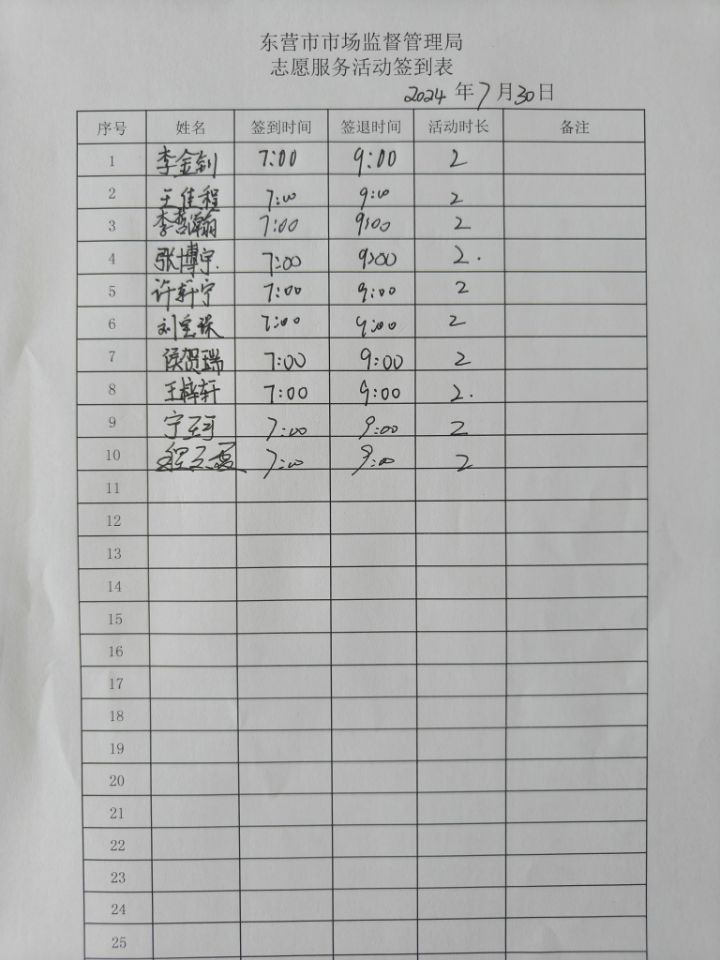 东营市市场监督管理局
志愿服务活动签到表
2024 年 7 月 30 日
序号 姓名 签到时间 签退时间 活动时长 备注
1 李金钊 7:00 9:00 2
2 王佳程 7:00 9:00 2
3 李哲瀚 7:00 9:00 2
4 张博宁. 7:00 9:00 2.
5 许轩宁 7:00 9:00 2
6 7:00 9:00 2
7 侯贺瑞 7:00 9:00 2
8 王梓轩 7:00 9:00 2.
9 7:00 9:00 2
10 7:00 9:00 2
11
12
13
14
15
16
17
18
19
20
21
22
23
24
25